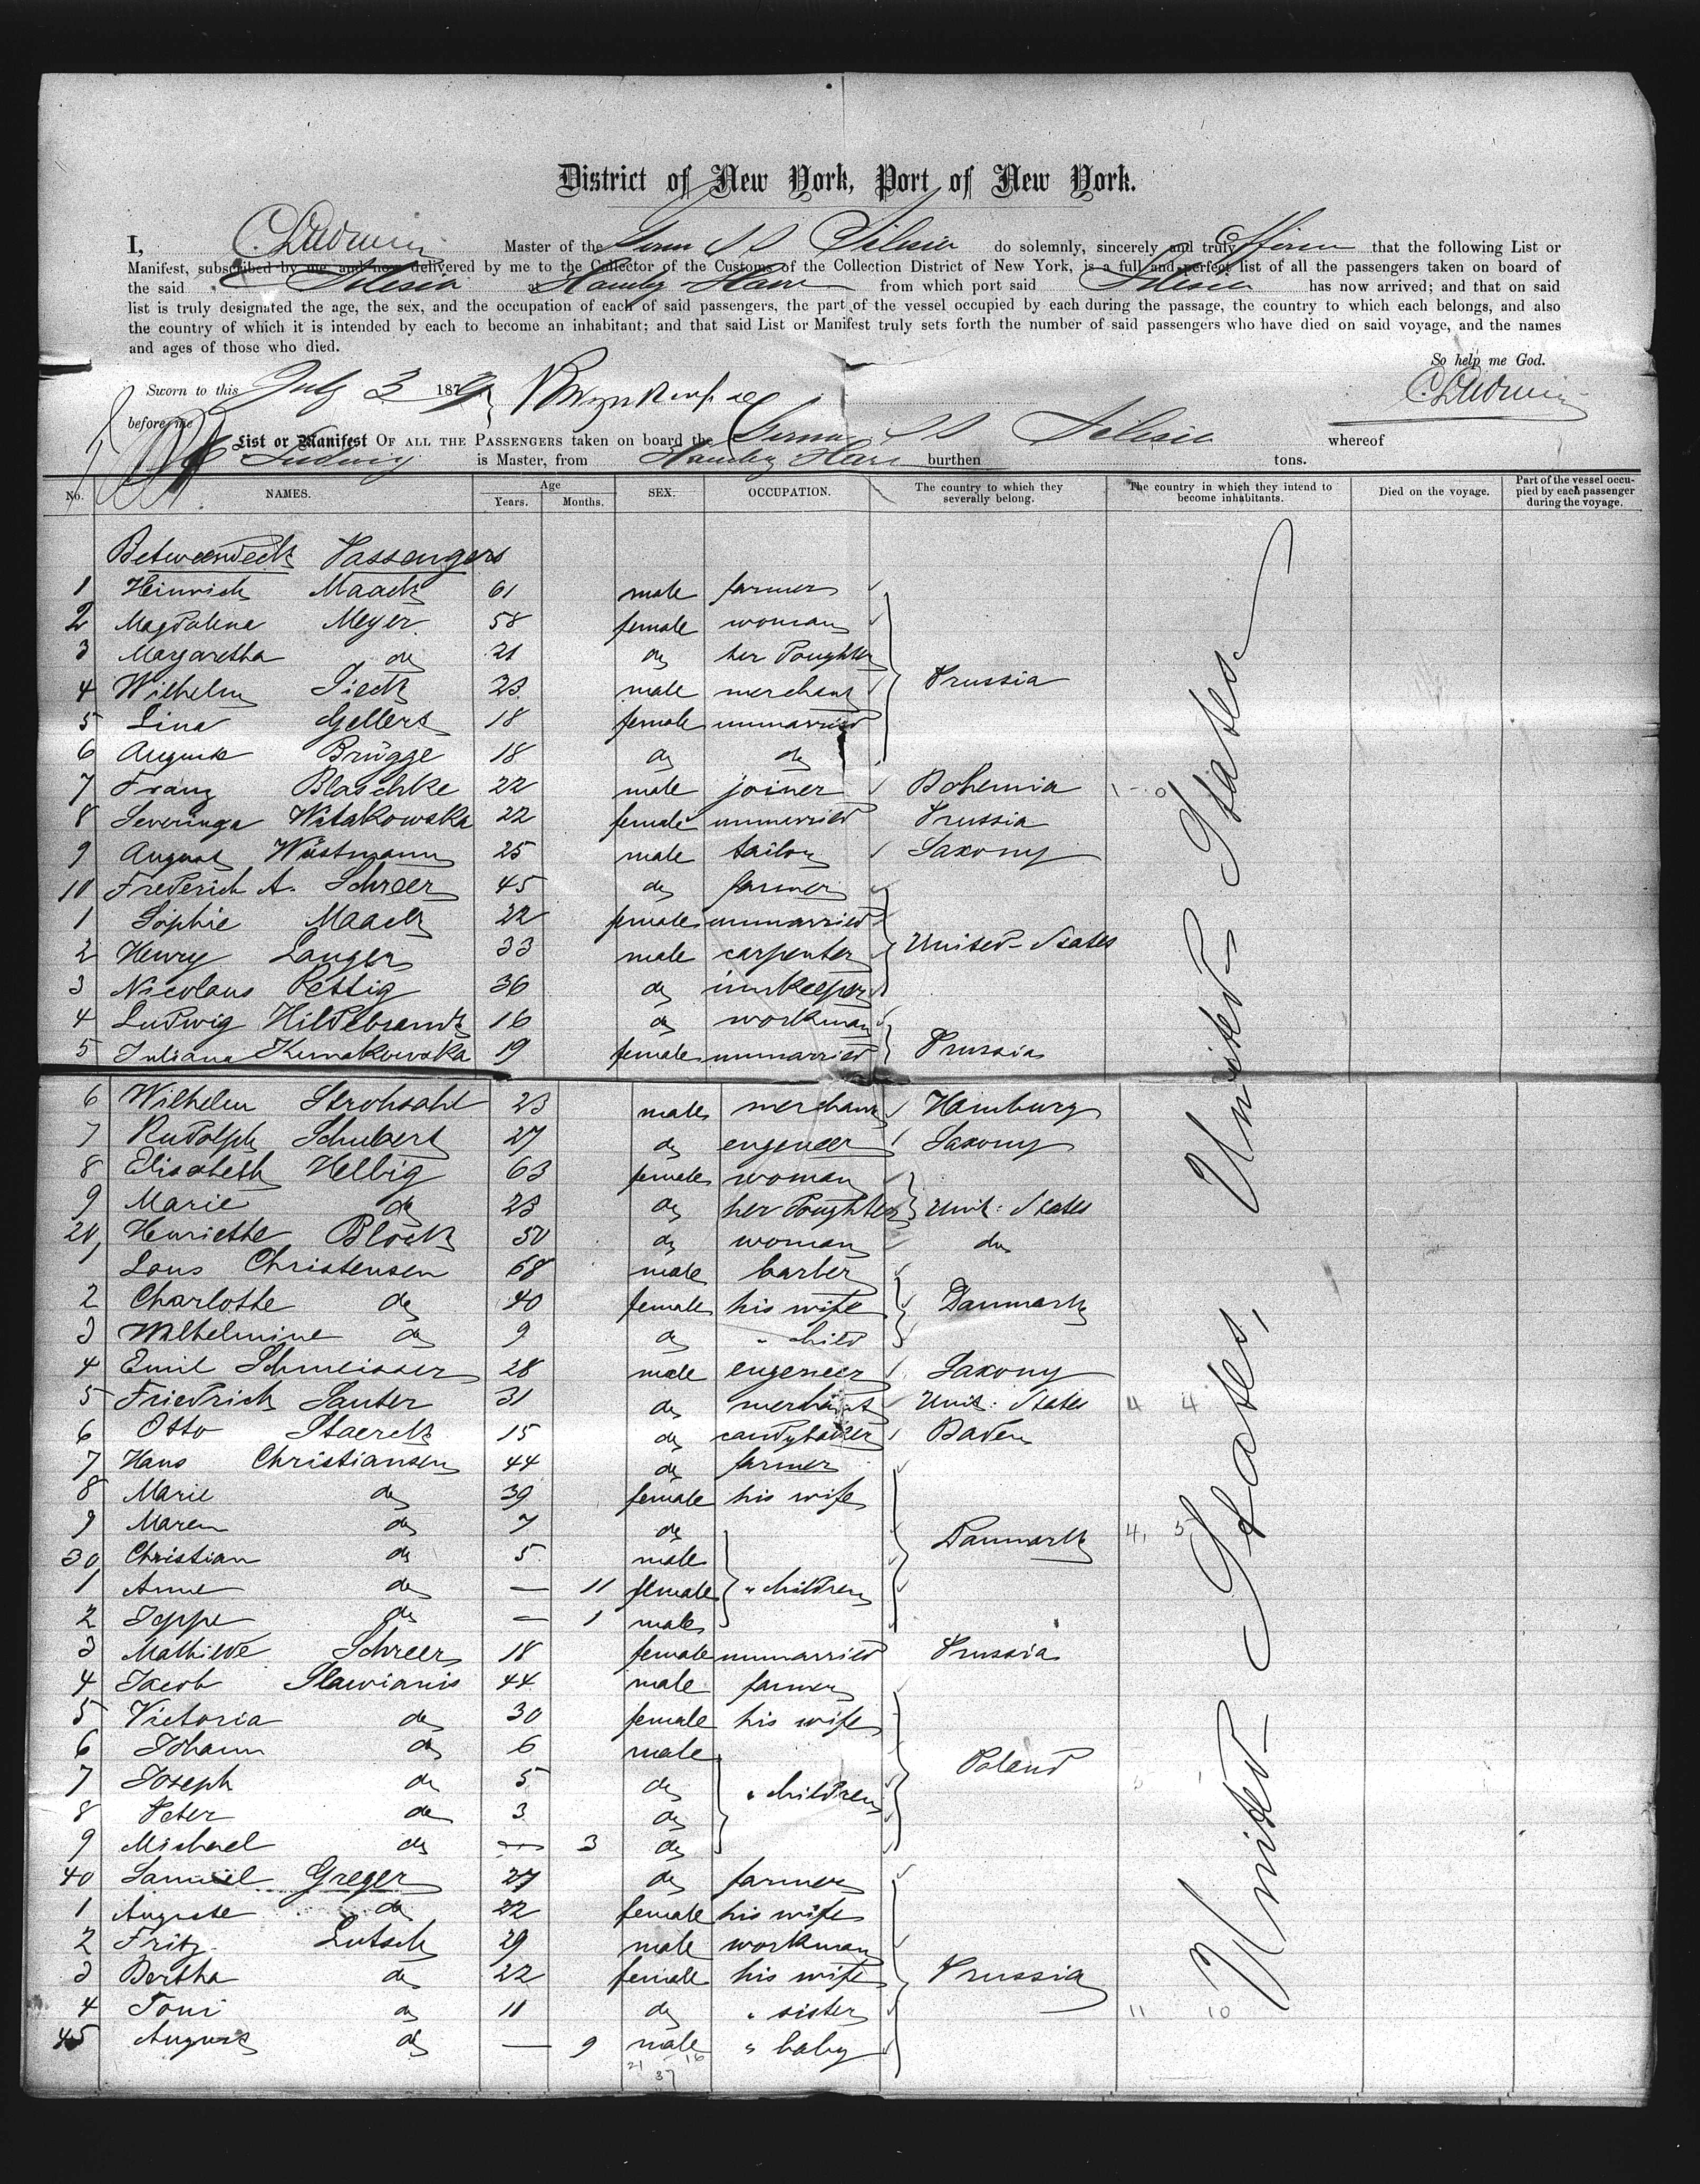 District of New York, Port of New York.
I, C. Ludwig Master of the Germ S S Silesia do solemnly, sincerely and truly affirm that the following List or
Manifest, subscribed by me, and now delivered by me to the Collector of the Customs of the Collection District of New York, is a full and perfect list of all the passengers taken on board of
the said Silesia at Hambg - Havre from which port said Silesia has now arrived; and that on said
list is truly designated the age, the sex, and the occupation of each of said passengers, the part of the vessel occupied by each during the passage, the country to which each belongs, and also
the country of which it is intended by each to become an inhabitant; and that said List or Manifest truly sets forth the number of said passengers who have died on said voyage, and the names
and ages of those who died.
So help me God.
Sworn to this July 3 1879
C. Ludwig
before me
List or Manifest OF ALL THE PASSENGERS taken on board the Germ S S Silesia whereof
C Ludwig is Master, from Hambg Havre burthen tons.
No. NAMES. Age Years. Months. SEX. OCCUPATION. The country to which they severally belong. The country in which they intend to become inhabitants. Died on the voyage. Part of the vessel occupied by each passenger during the voyage.
Betweendeck Passengers
1 Heinrich Maack 61 male farmer
2 Magdalena Meyer 58 female woman
3 Margaretha do 21 do her Doughter
4 Wilhelm Sieck 23 male merchant Prussia
5 Lina Gellert 18 female unmarried
6 Auguste Brügge 18 do do
7 Franz Blaschke 22 male joiner Bohemia
8 Severinga Witakowska 22 female unmarried Prussia
9 August Wüstmann 25 male tailor Saxony
10 Frederich A. Schreer 45 do farmer
1 Sophie Maack 22 female unmarried
2 Henry Langer 33 male carpenter United States
3 Nicolaus Rettig 36 do innkeeper
4 Ludwig Hildebrandt 16 do workman
5 Juliana Kumakowska 19 female unmarried Prussia
6 Wilhelm Strohsahl 23 male merchant Hamburg
7 Rudolph Schubert 27 do engeneer Saxony
8 Elisabeth Helbig 63 female woman
9 Marie do 23 do her Doughter Unit: States
20, Henriette Block 50 do woman do
1 Lous Christensen 68 male barber
2 Charlotte do 40 female his wife Danmark
3 Wilhelmine do 9 do " child
4 Emil Schmeisser 28 male engeneer Saxony
5 Friedrich Sauter 31 do merchant Unit: States 4 4
6 Otto Staerck 15 do candybaker Baden
7 Hans Christiansen 44 do farmer
8 Marie do 39 female his wife
9 Maren do 7 do Danmark 4, 5
30, Christian do 5 male
1 Anne do — 11 female " children
2 Jeppe do — 1 male
3 Mathilde Schreer 18 female unmarried Prussia
4 Jacob Slawianis 44 male farmer
5 Victoria do 30 female his wife
6 Johann do 6 male Poland
7 Joseph do 5 do " children
8 Peter do 3 do
9 Michael do — 3 do
40 Samuel Greger 27 do farmer
1 Auguste do 22 female his wife
2 Fritz Lutsch 29 male workman
3 Bertha do 22 female his wife Prussia
4 Toni do 11 do " sister 11 10
45 August do — 9 male " baby
21 16
37
United States
United States,